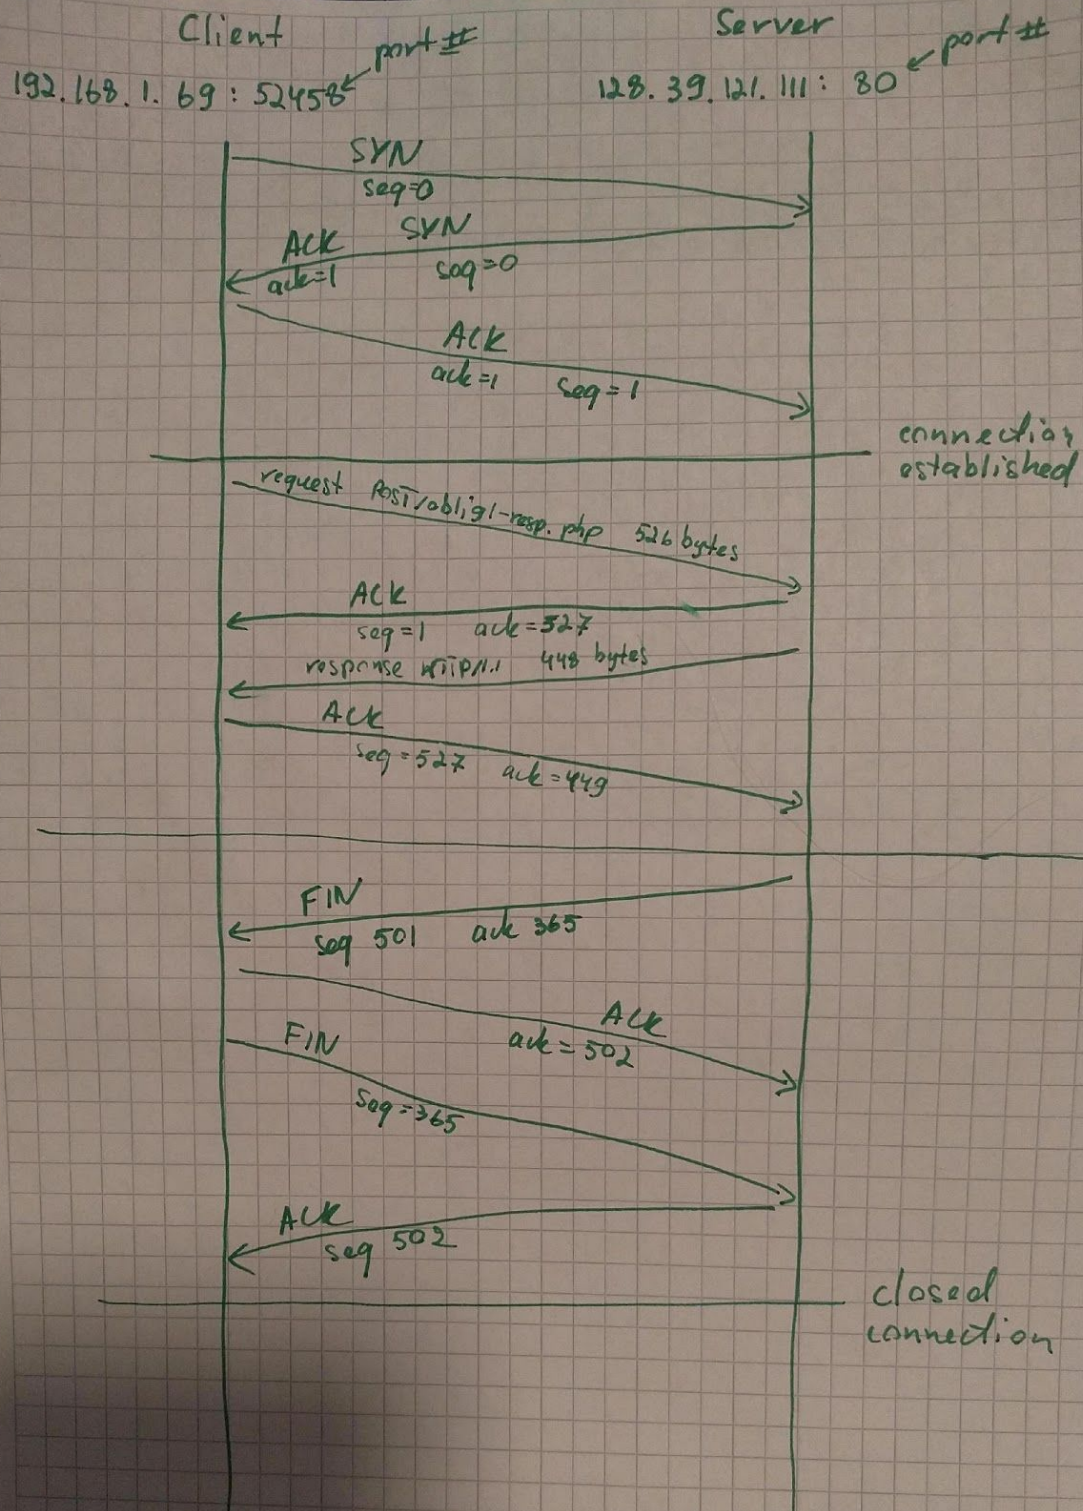 Client Server
port # port #
192.168.1.69 : 52458 128.39.121.111 : 80
SYN
seq=0
SYN
ACK
ack=1 seq=0
ACK
ack=1 seq=1
connection
established
request POST/oblig1-resp.php 526 bytes
ACK
seq=1 ack=527
response HTTP/1.1 448 bytes
ACK
seq=527 ack=449
FIN
seq 501 ack 365
ACK
ack=502
FIN
seq=365
ACK
seq 502
closed
connection